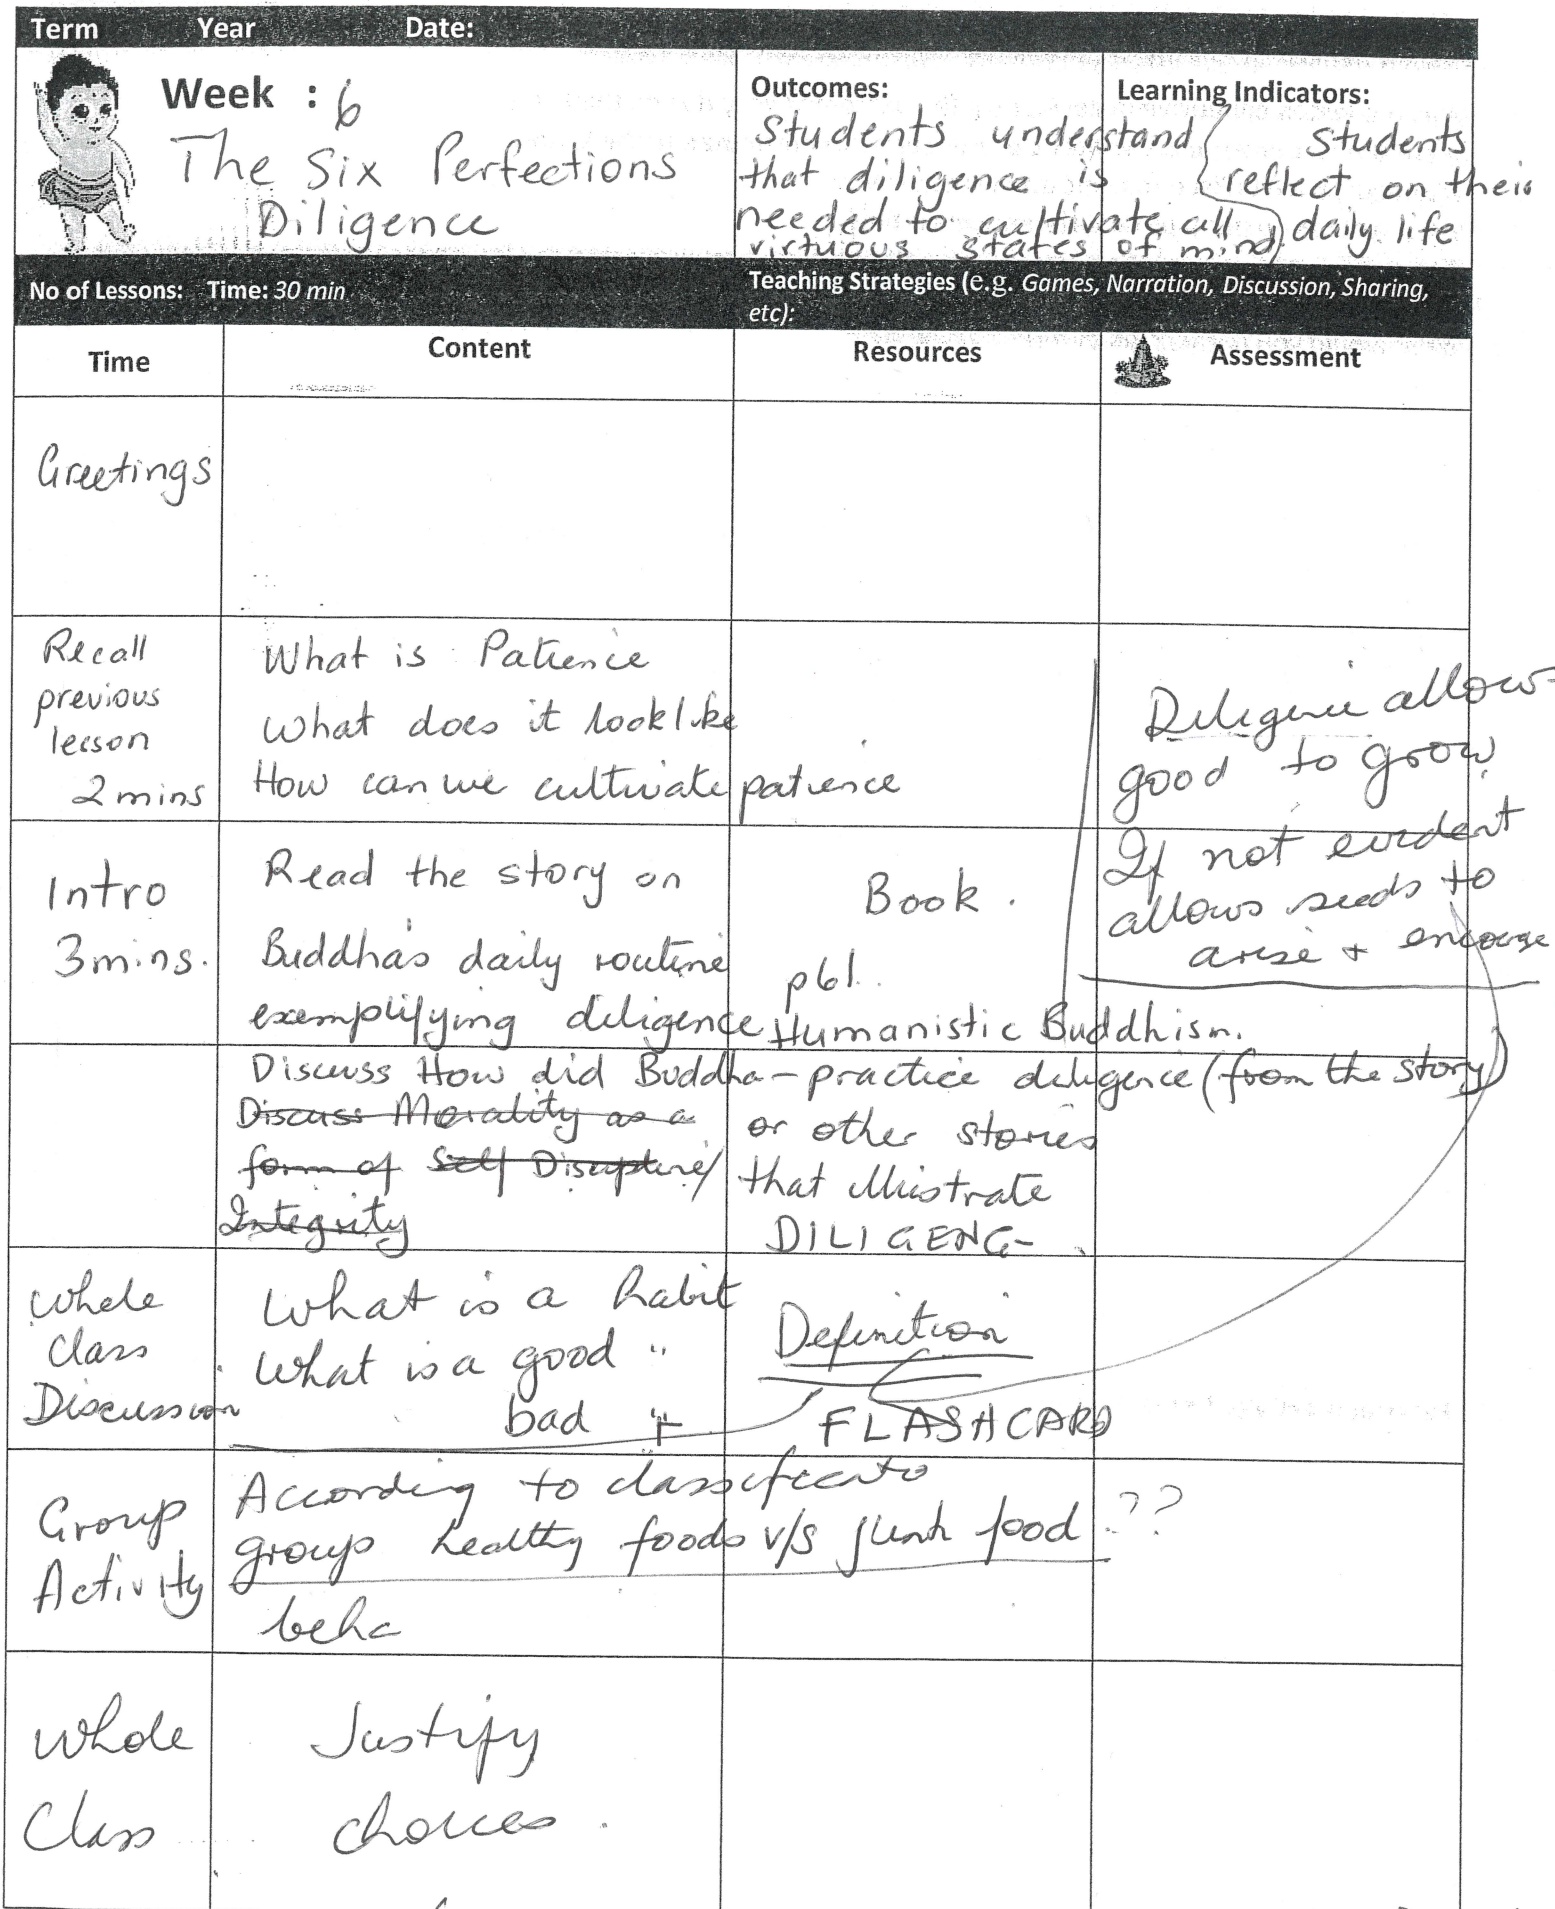 Term Year Date:
Week : 6
The Six Perfections
Diligence
Outcomes:
Students understand
that diligence is
needed to cultivate all
virtuous states of mind
Learning Indicators:
Students
reflect on their
daily life
No of Lessons: Time: 30 min
Teaching Strategies (e.g. Games, Narration, Discussion, Sharing,
etc):
Time Content Resources Assessment
Greetings
Recall
previous
lesson
2 mins
What is Patience
What does it look like
How can we cultivate patience
Diligence allow
good to grow
If not evident
allows seeds to
arise + encourge
Intro
3 mins.
Read the story on
Buddha's daily routine
exemplifying diligence
Book.
p61.
Humanistic Buddhism.
Discuss How did Buddha - practice diligence (from the story)
Discuss Morality as a
form of Self Discipline/
Integrity
or other stories
that illustrate
DILIGENC
Whole
Class
Discussion
What is a habit
What is a good "
bad "
Definition
FLASHCARD
Group
Activity
According to
group healthy foods v/s junk food ??
beha
Whole
Class
Justify
choices.